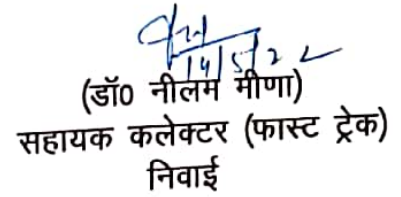 14/5/22
(डॉ0 नीलम मीणा)
सहायक कलेक्टर (फास्ट ट्रेक)
निवाई